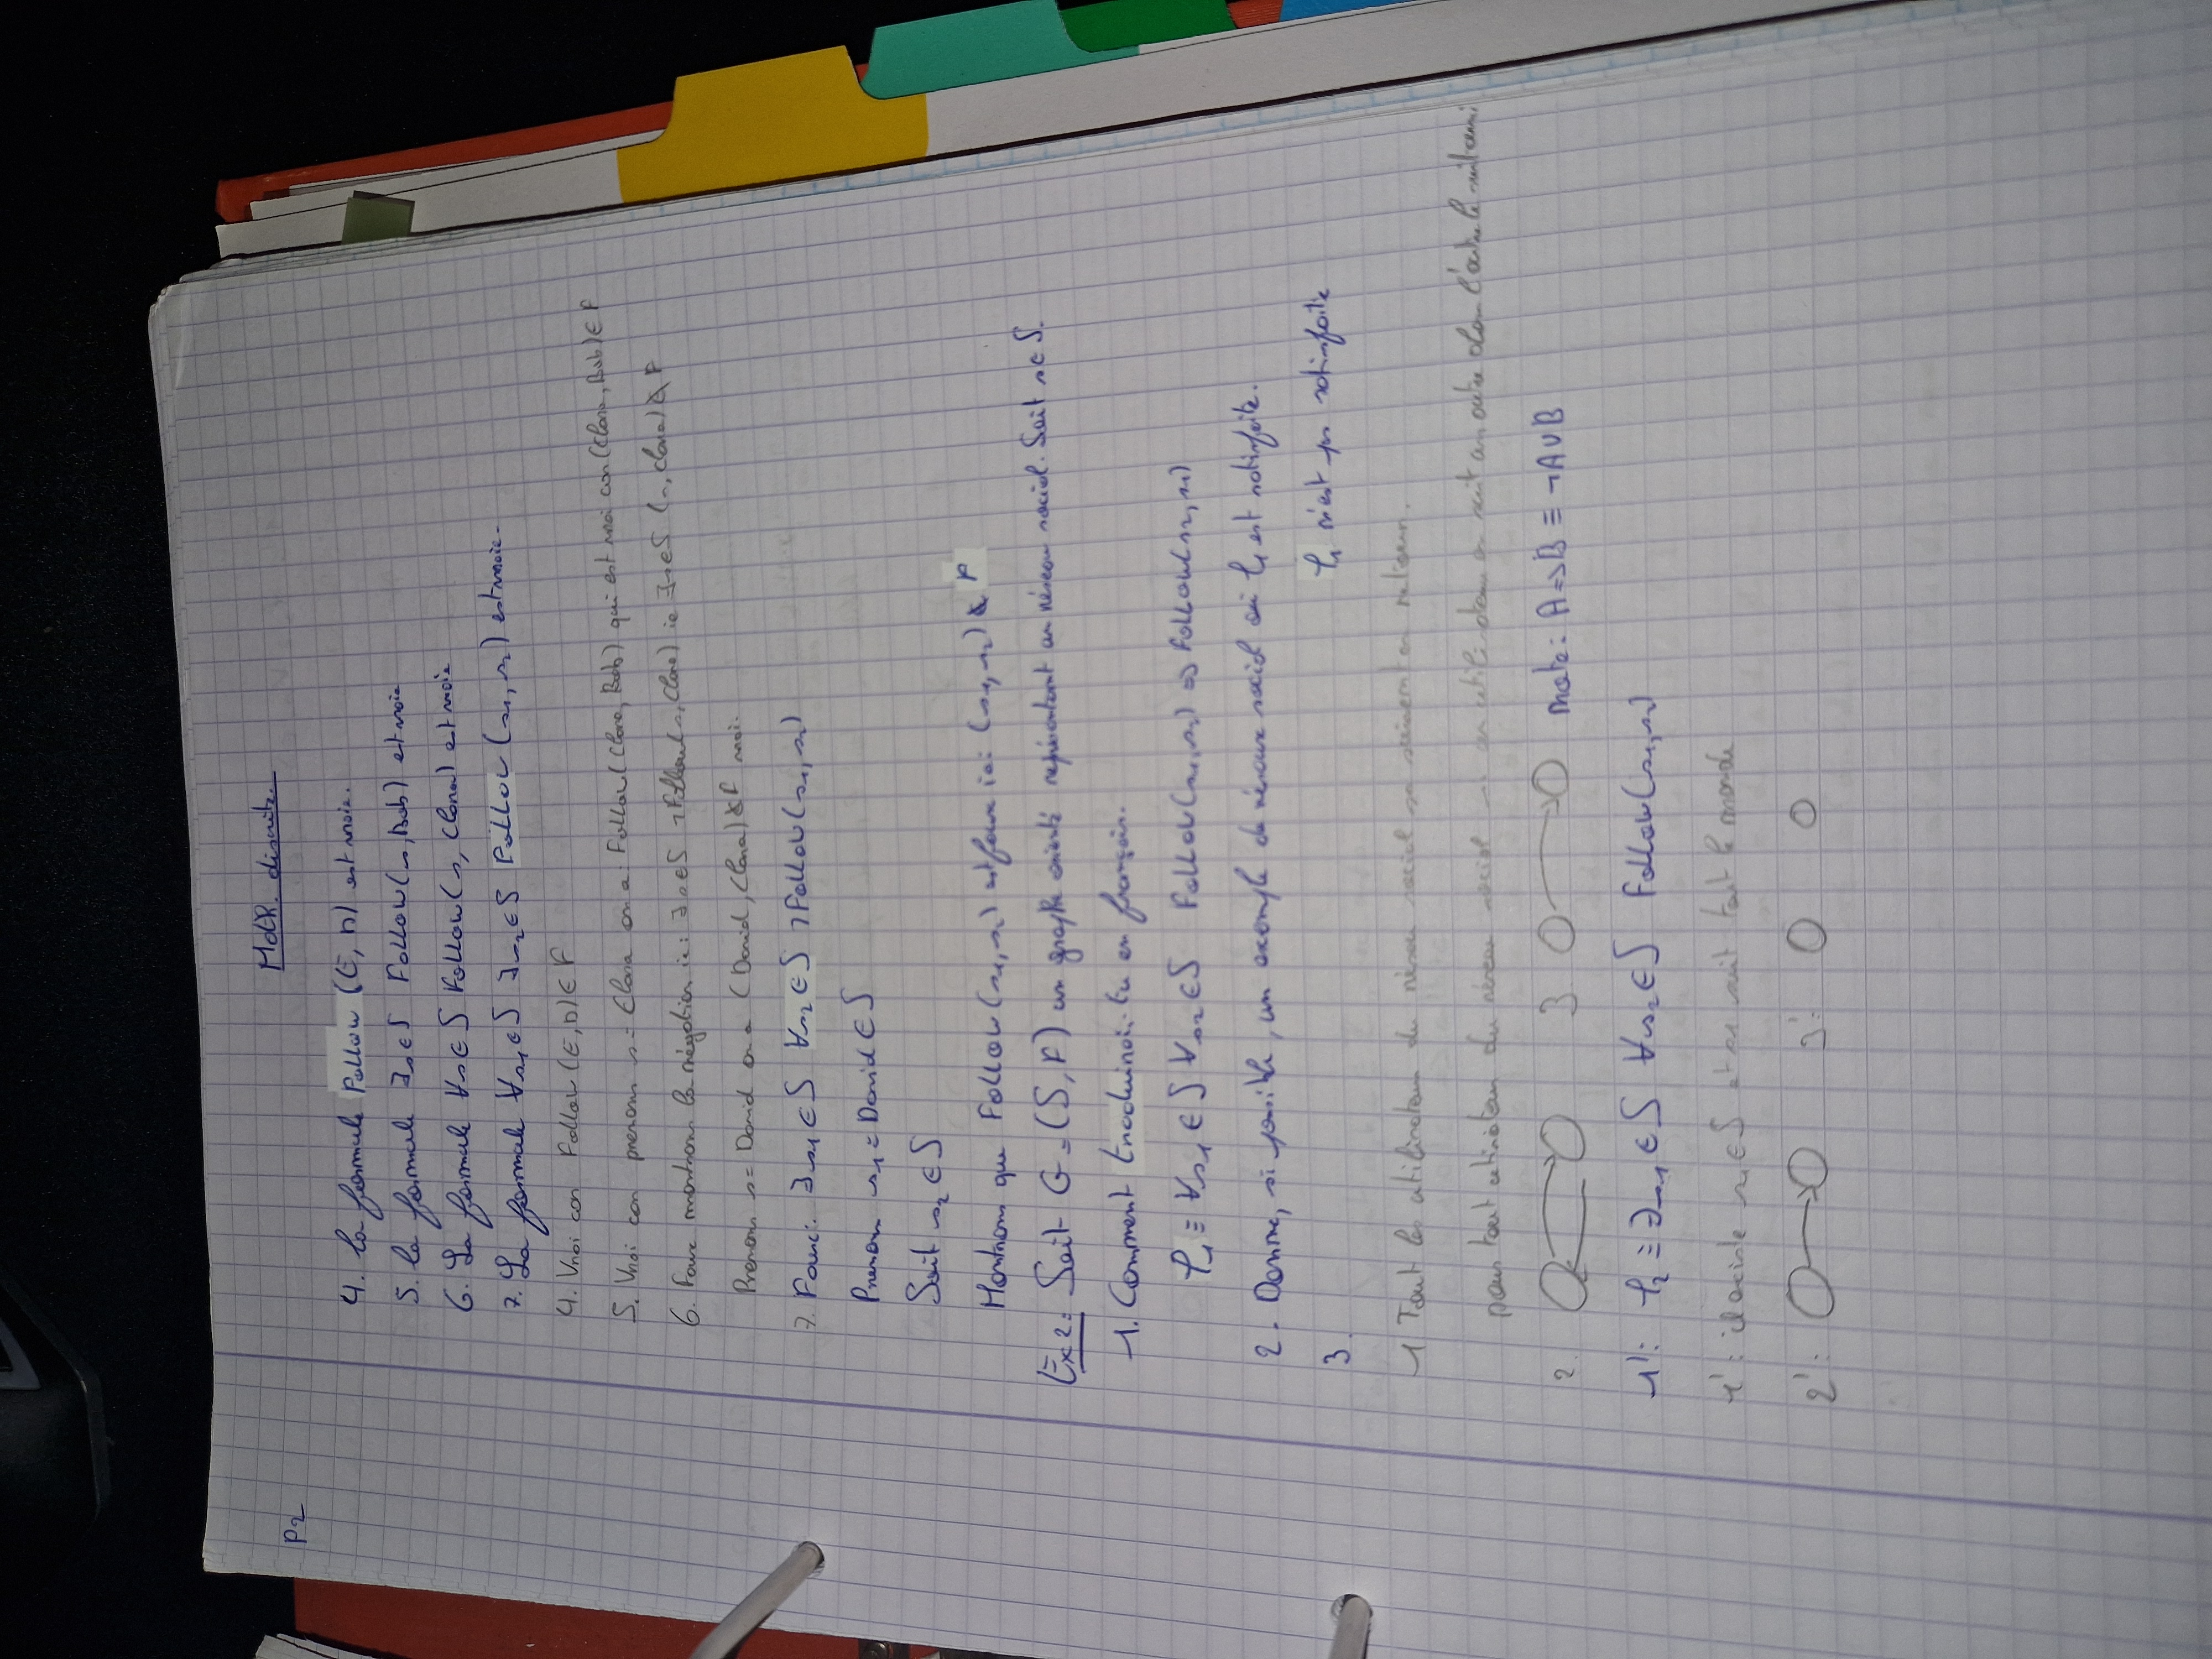 Math. discrète.
P2
4. la formule Follow (E, D) est vraie.
5. la formule ∃s∈S Follow(s, Bob) est vraie
6. La formule ∀s∈S Follow(s, Clara) est vraie
7. La formule ∀s₁∈S ∃s₂∈S Follow (s₁, s₂) est vraie.
4. Vrai car Follow (E, D) ∈ F
5. Vrai car prenons s = Clara on a : Follow (Clara, Bob) qui est vrai car (Clara, Bob) ∈ F
6. Faux montrons la négation ie : ∃s∈S ¬Follow(s, Clara) ie ∃s∈S (s, Clara) ∉ F
Prenons s = David on a (David, Clara) ∉ F vrai.
7. Faux : ∃s₁∈S ∀s₂∈S ¬Follow(s₁, s₂)
Prenons s₁ = David ∈ S
Soit s₂ ∈ S
Montrons que Follow(s₁, s₂) est faux ie : (s₁, s₂) ∉ F
Ex 2 : Soit G = (S, F) un graphe orienté représentant un réseau social. Soit s∈S.
1. Comment traduirais-tu en français.
φ₁ ≡ ∀s₁∈S ∀s₂∈S Follow(s₁, s₂) => Follow(s₂, s₁)
2. Donne, si possible, un exemple de réseau social où φ₁ est satisfaite.
3. φ₁ n'est pas satisfaite
1 Tout les utilisateurs du réseau social se suivent en retour.
pour tout utilisateur du réseau social si un utilisateur en suit un autre alors l'autre le suit aussi
2. 3. note : A => B ≡ ¬A ∪ B
1' : φ₂ ≡ ∃s₁∈S ∀s₂∈S Follow(s₁, s₂)
1' : il existe s₁∈S et s₁ suit tout le monde
2' : 3' :